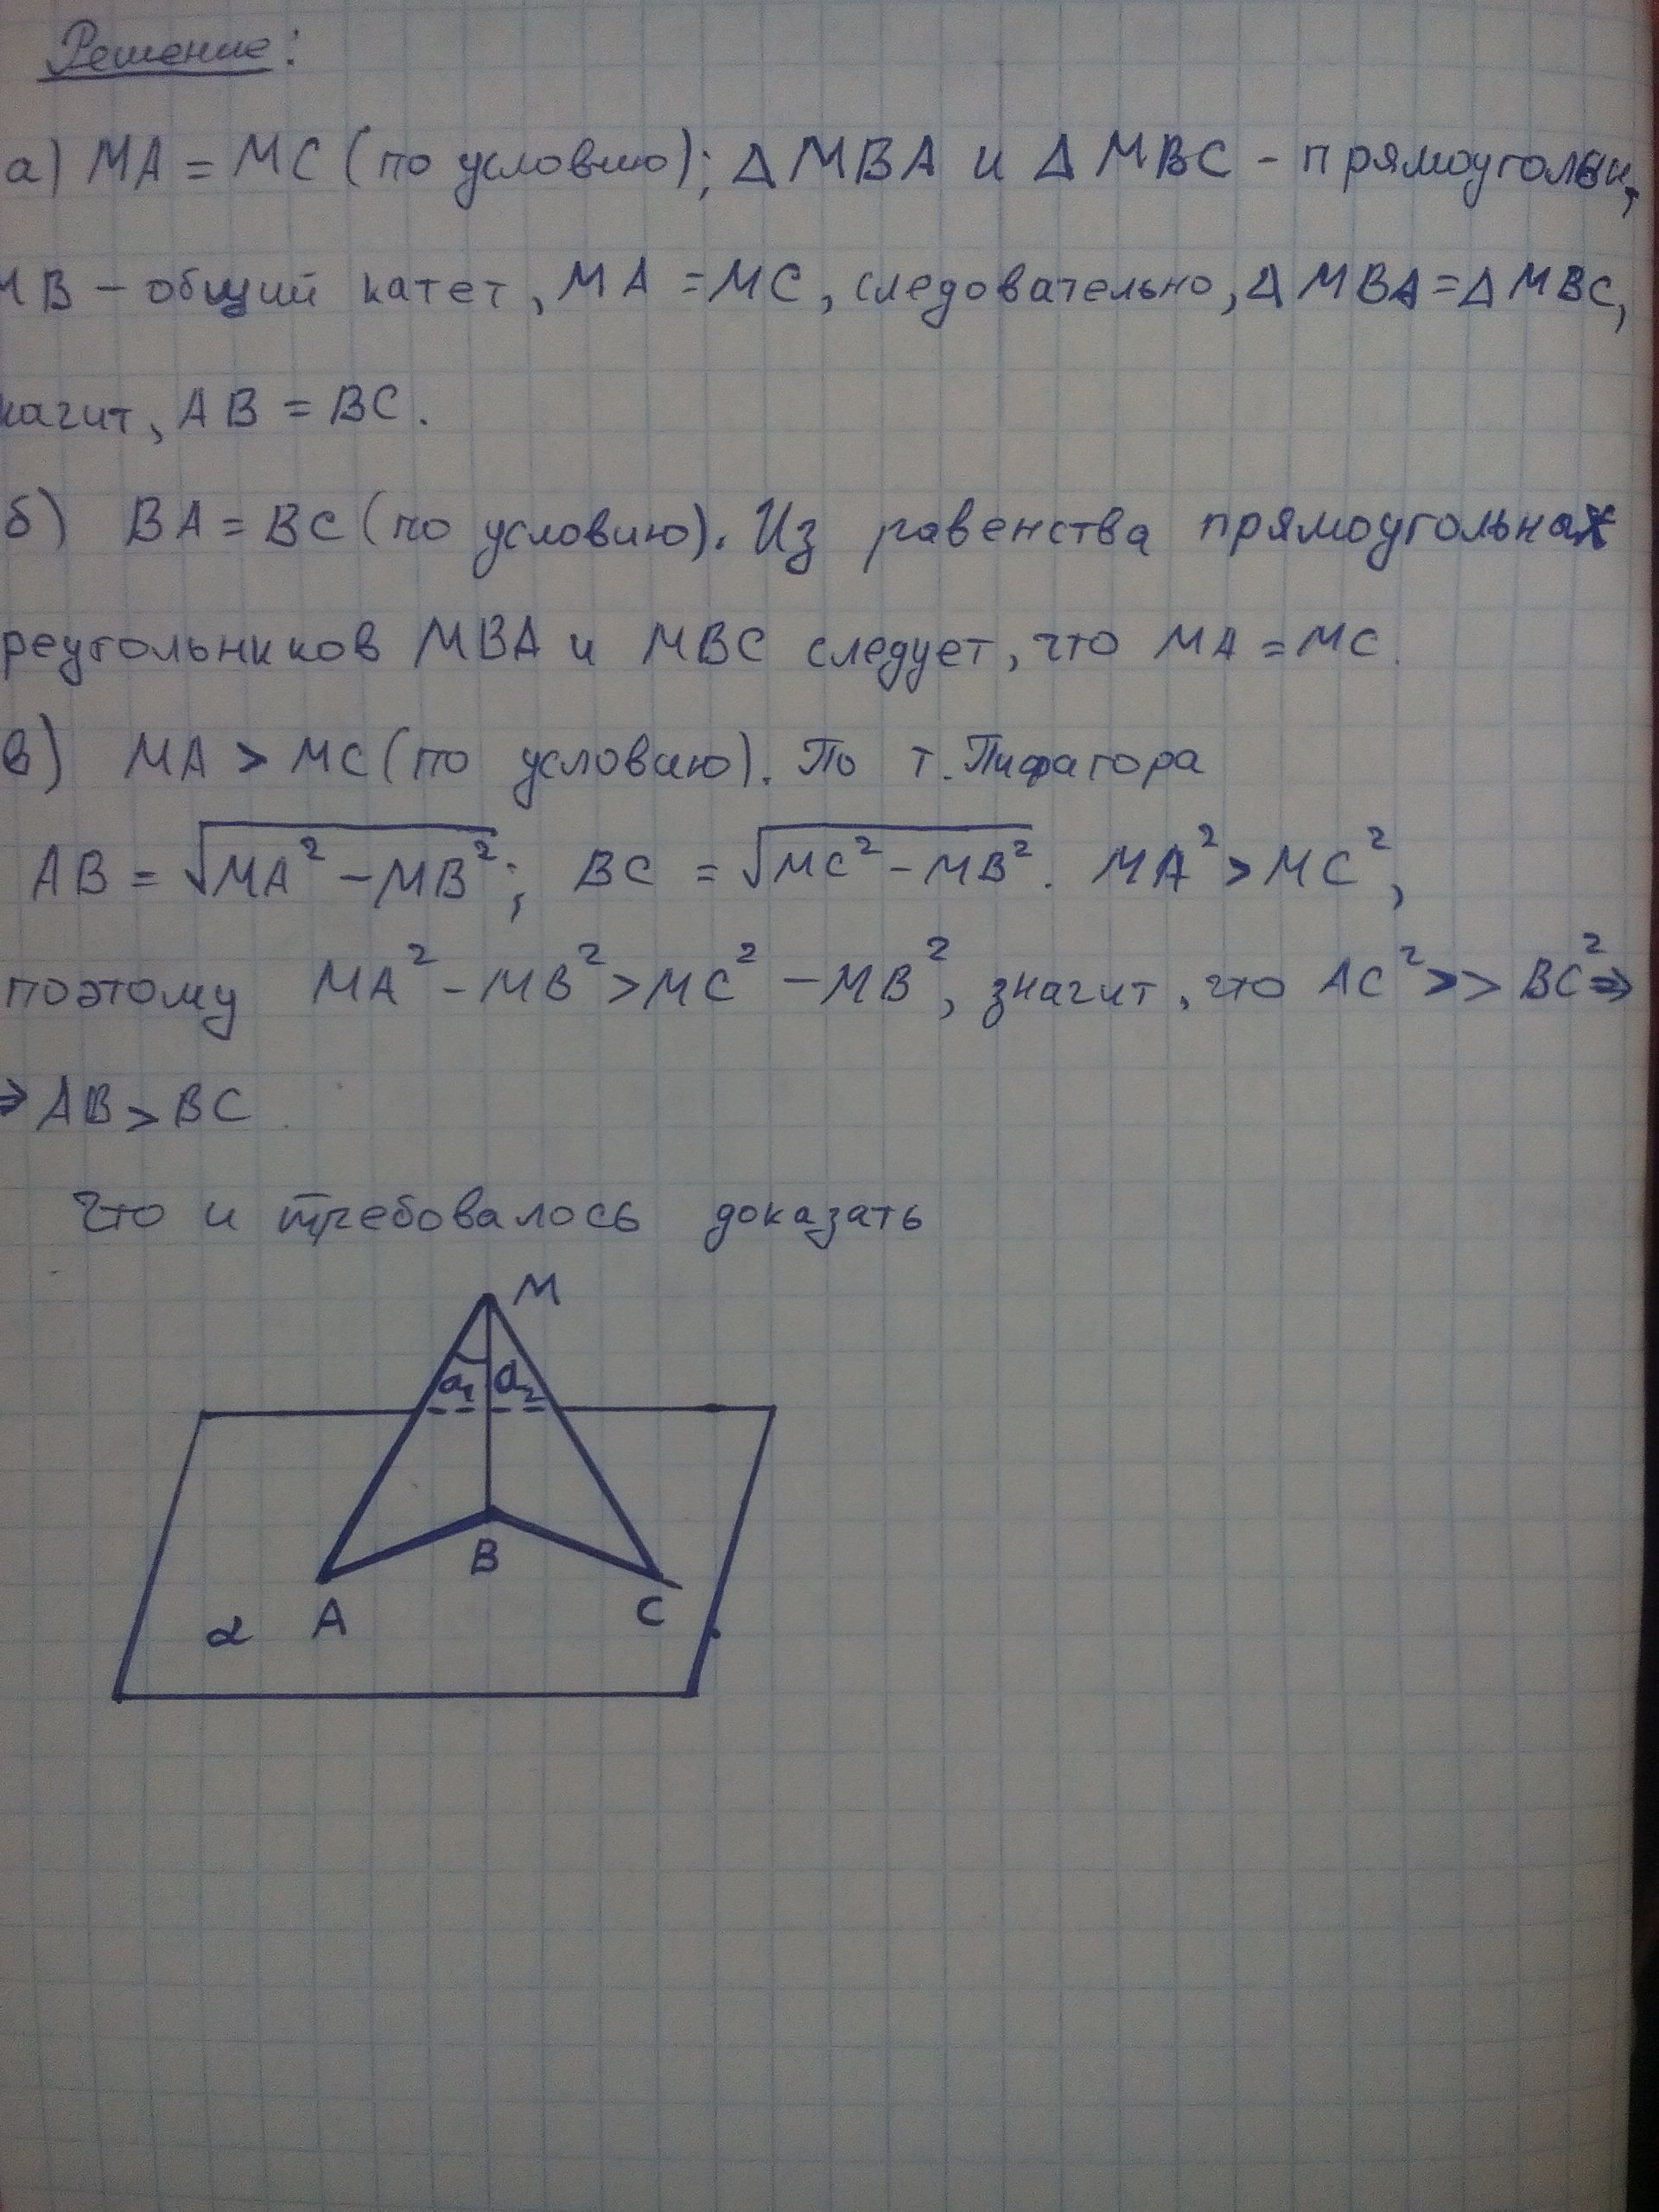 Решение:
а) MA = MC (по условию); Δ MBA и Δ MBC - прямоугольн,
MB - общий катет, MA = MC, следовательно, Δ MBA = Δ MBC,
начит, AB = BC.
б) BA = BC (по условию). Из равенства прямоугольных
реугольников MBA и MBC следует, что MA = MC.
в) MA > MC (по условию). По т. Пифагора
AB = √MA² - MB²; BC = √MC² - MB². MA² > MC²,
поэтому MA² - MB² > MC² - MB², значит, что AC² >> BC² ⇒
⇒ AB > BC
Что и требовалось доказать
M
a₁ a₂
B
A C
α